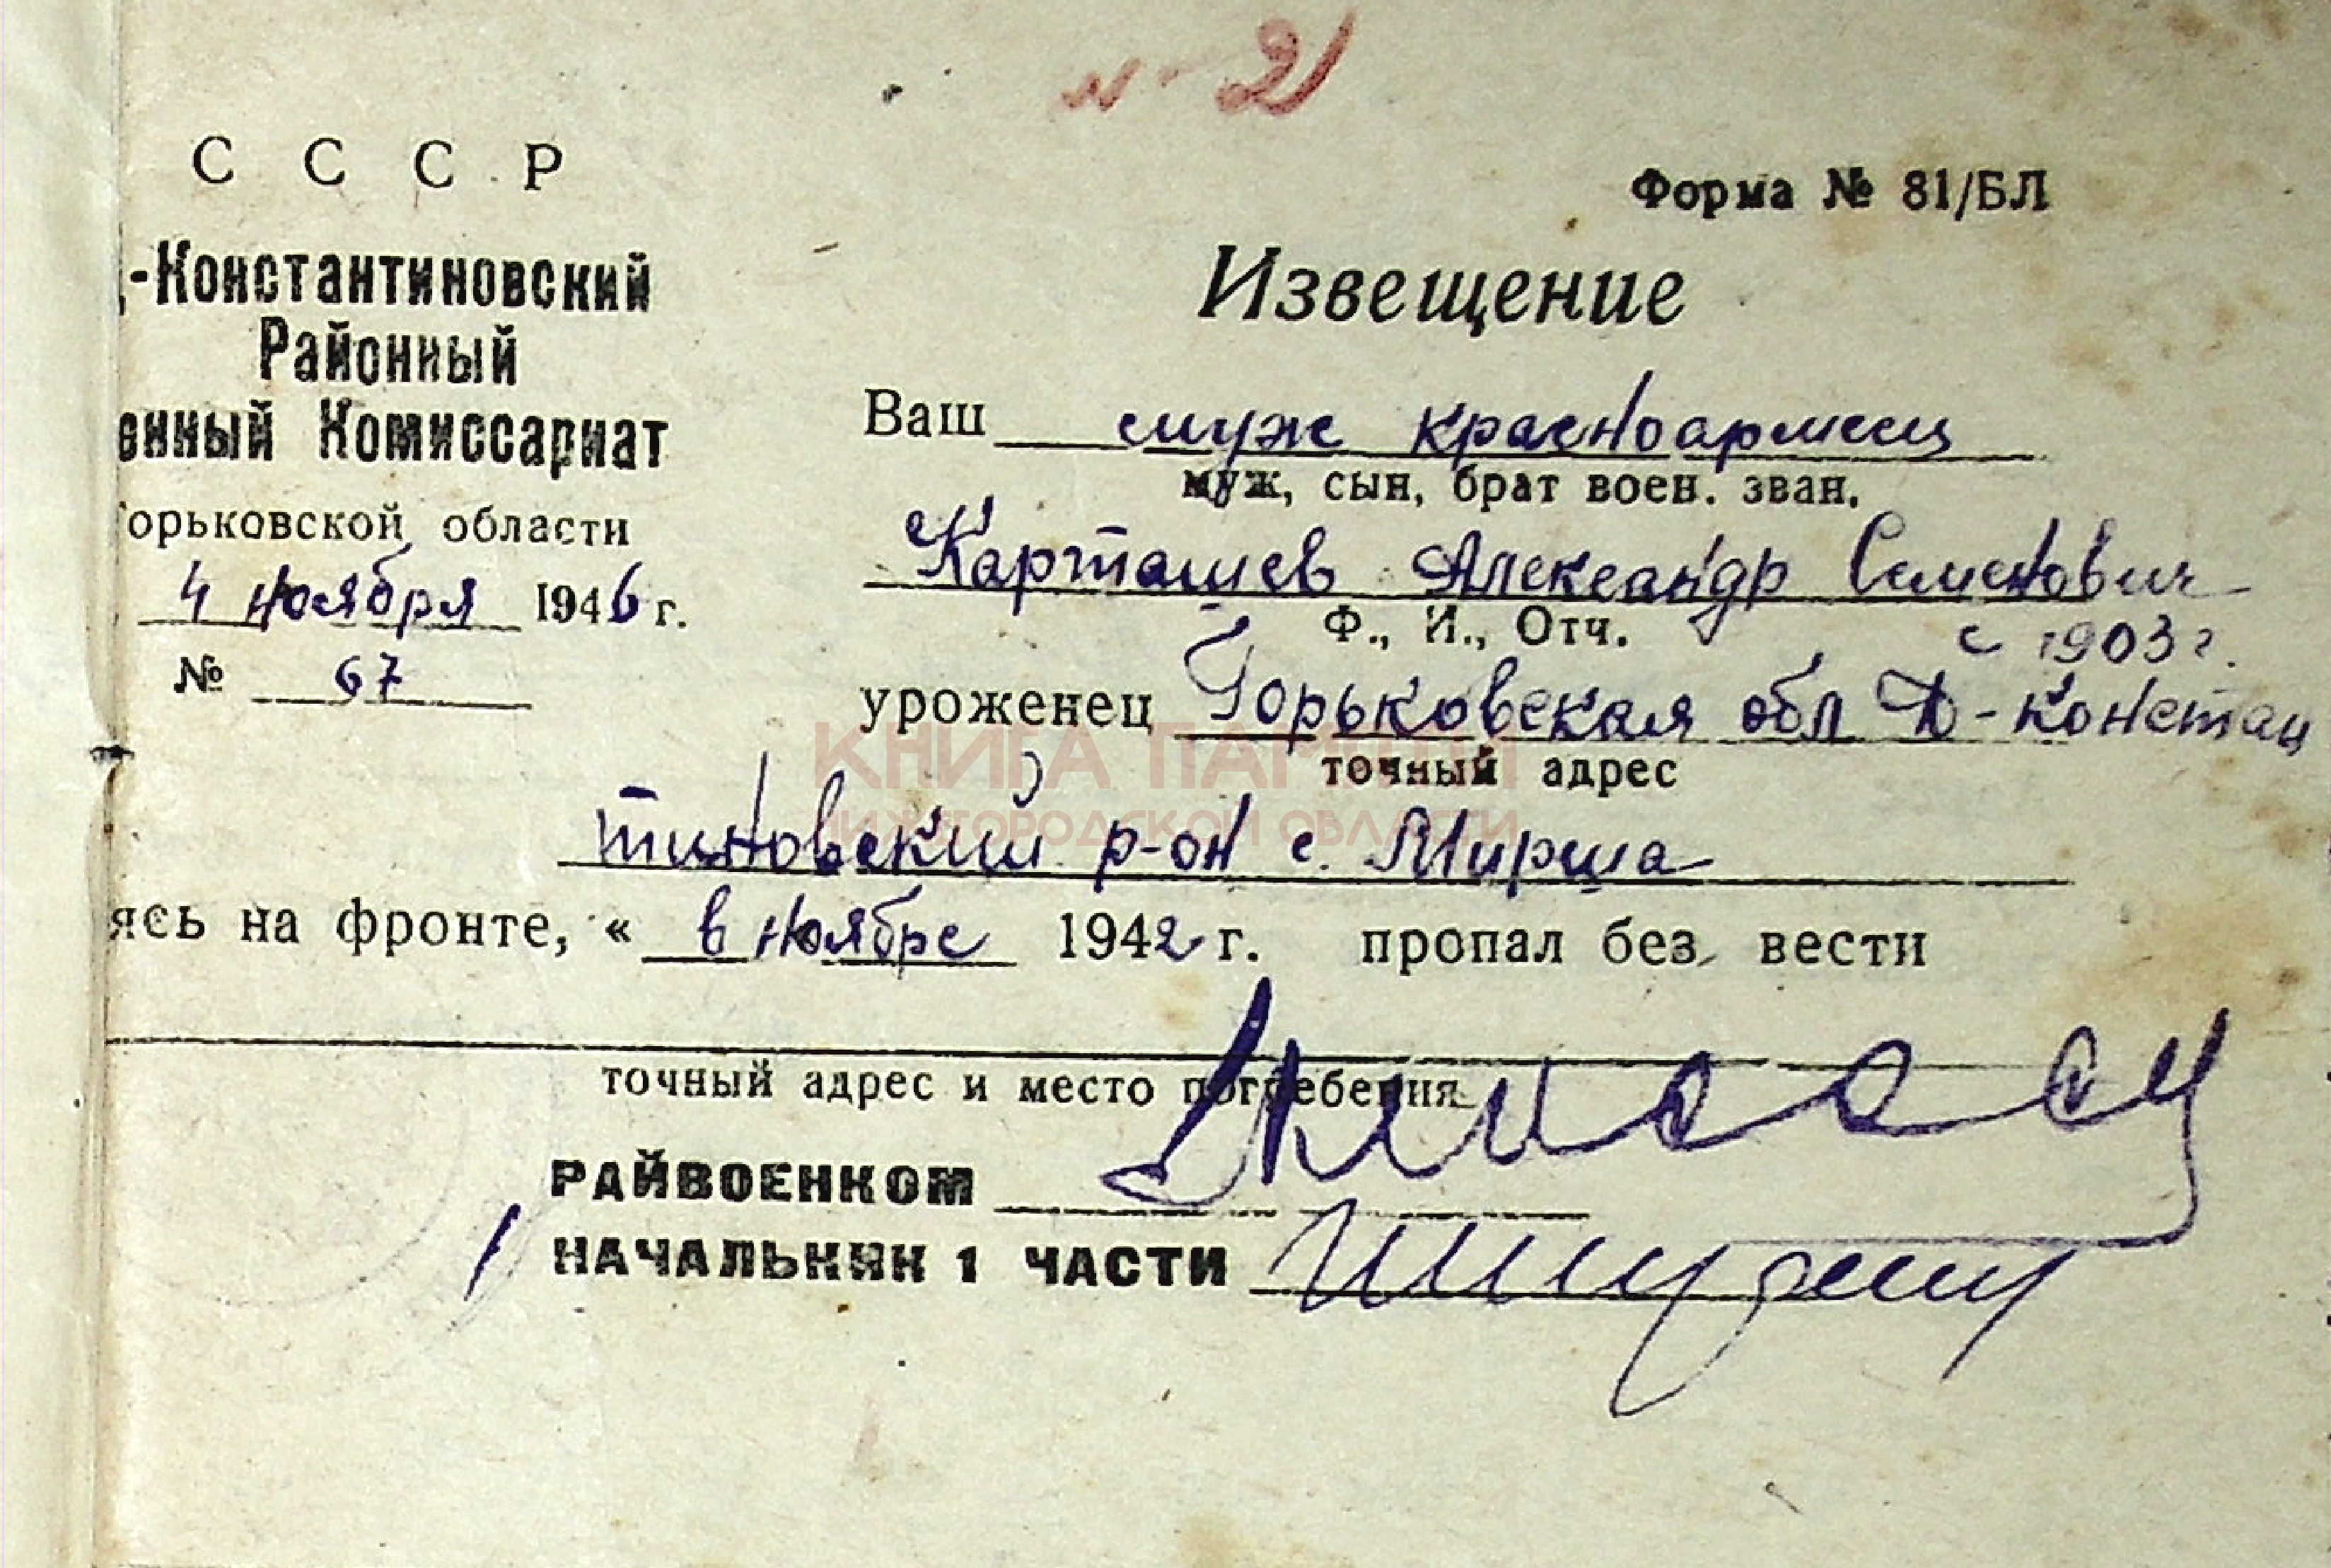 № 21
С С С Р
Форма № 81/БЛ
-Константиновский
Районный
енный Комиссариат
орьковской области
4 ноября 1946 г.
№ 67
Извещение
Ваш муж красноармеец
муж, сын, брат воен. зван.
Карташев Александр Семенович
Ф., И., Отч.
с 1903 г.
уроженец Горьковская обл Д-Констан
точный адрес
тиновский р-он с. Мирша
ясь на фронте, « в ноябре 1942 г. пропал без вести
точный адрес и место погребения
РАЙВОЕНКОМ
НАЧАЛЬНИК 1 ЧАСТИ
КНИГА ПАМЯТИ
НИЖЕГОРОДСКОЙ ОБЛАСТИ